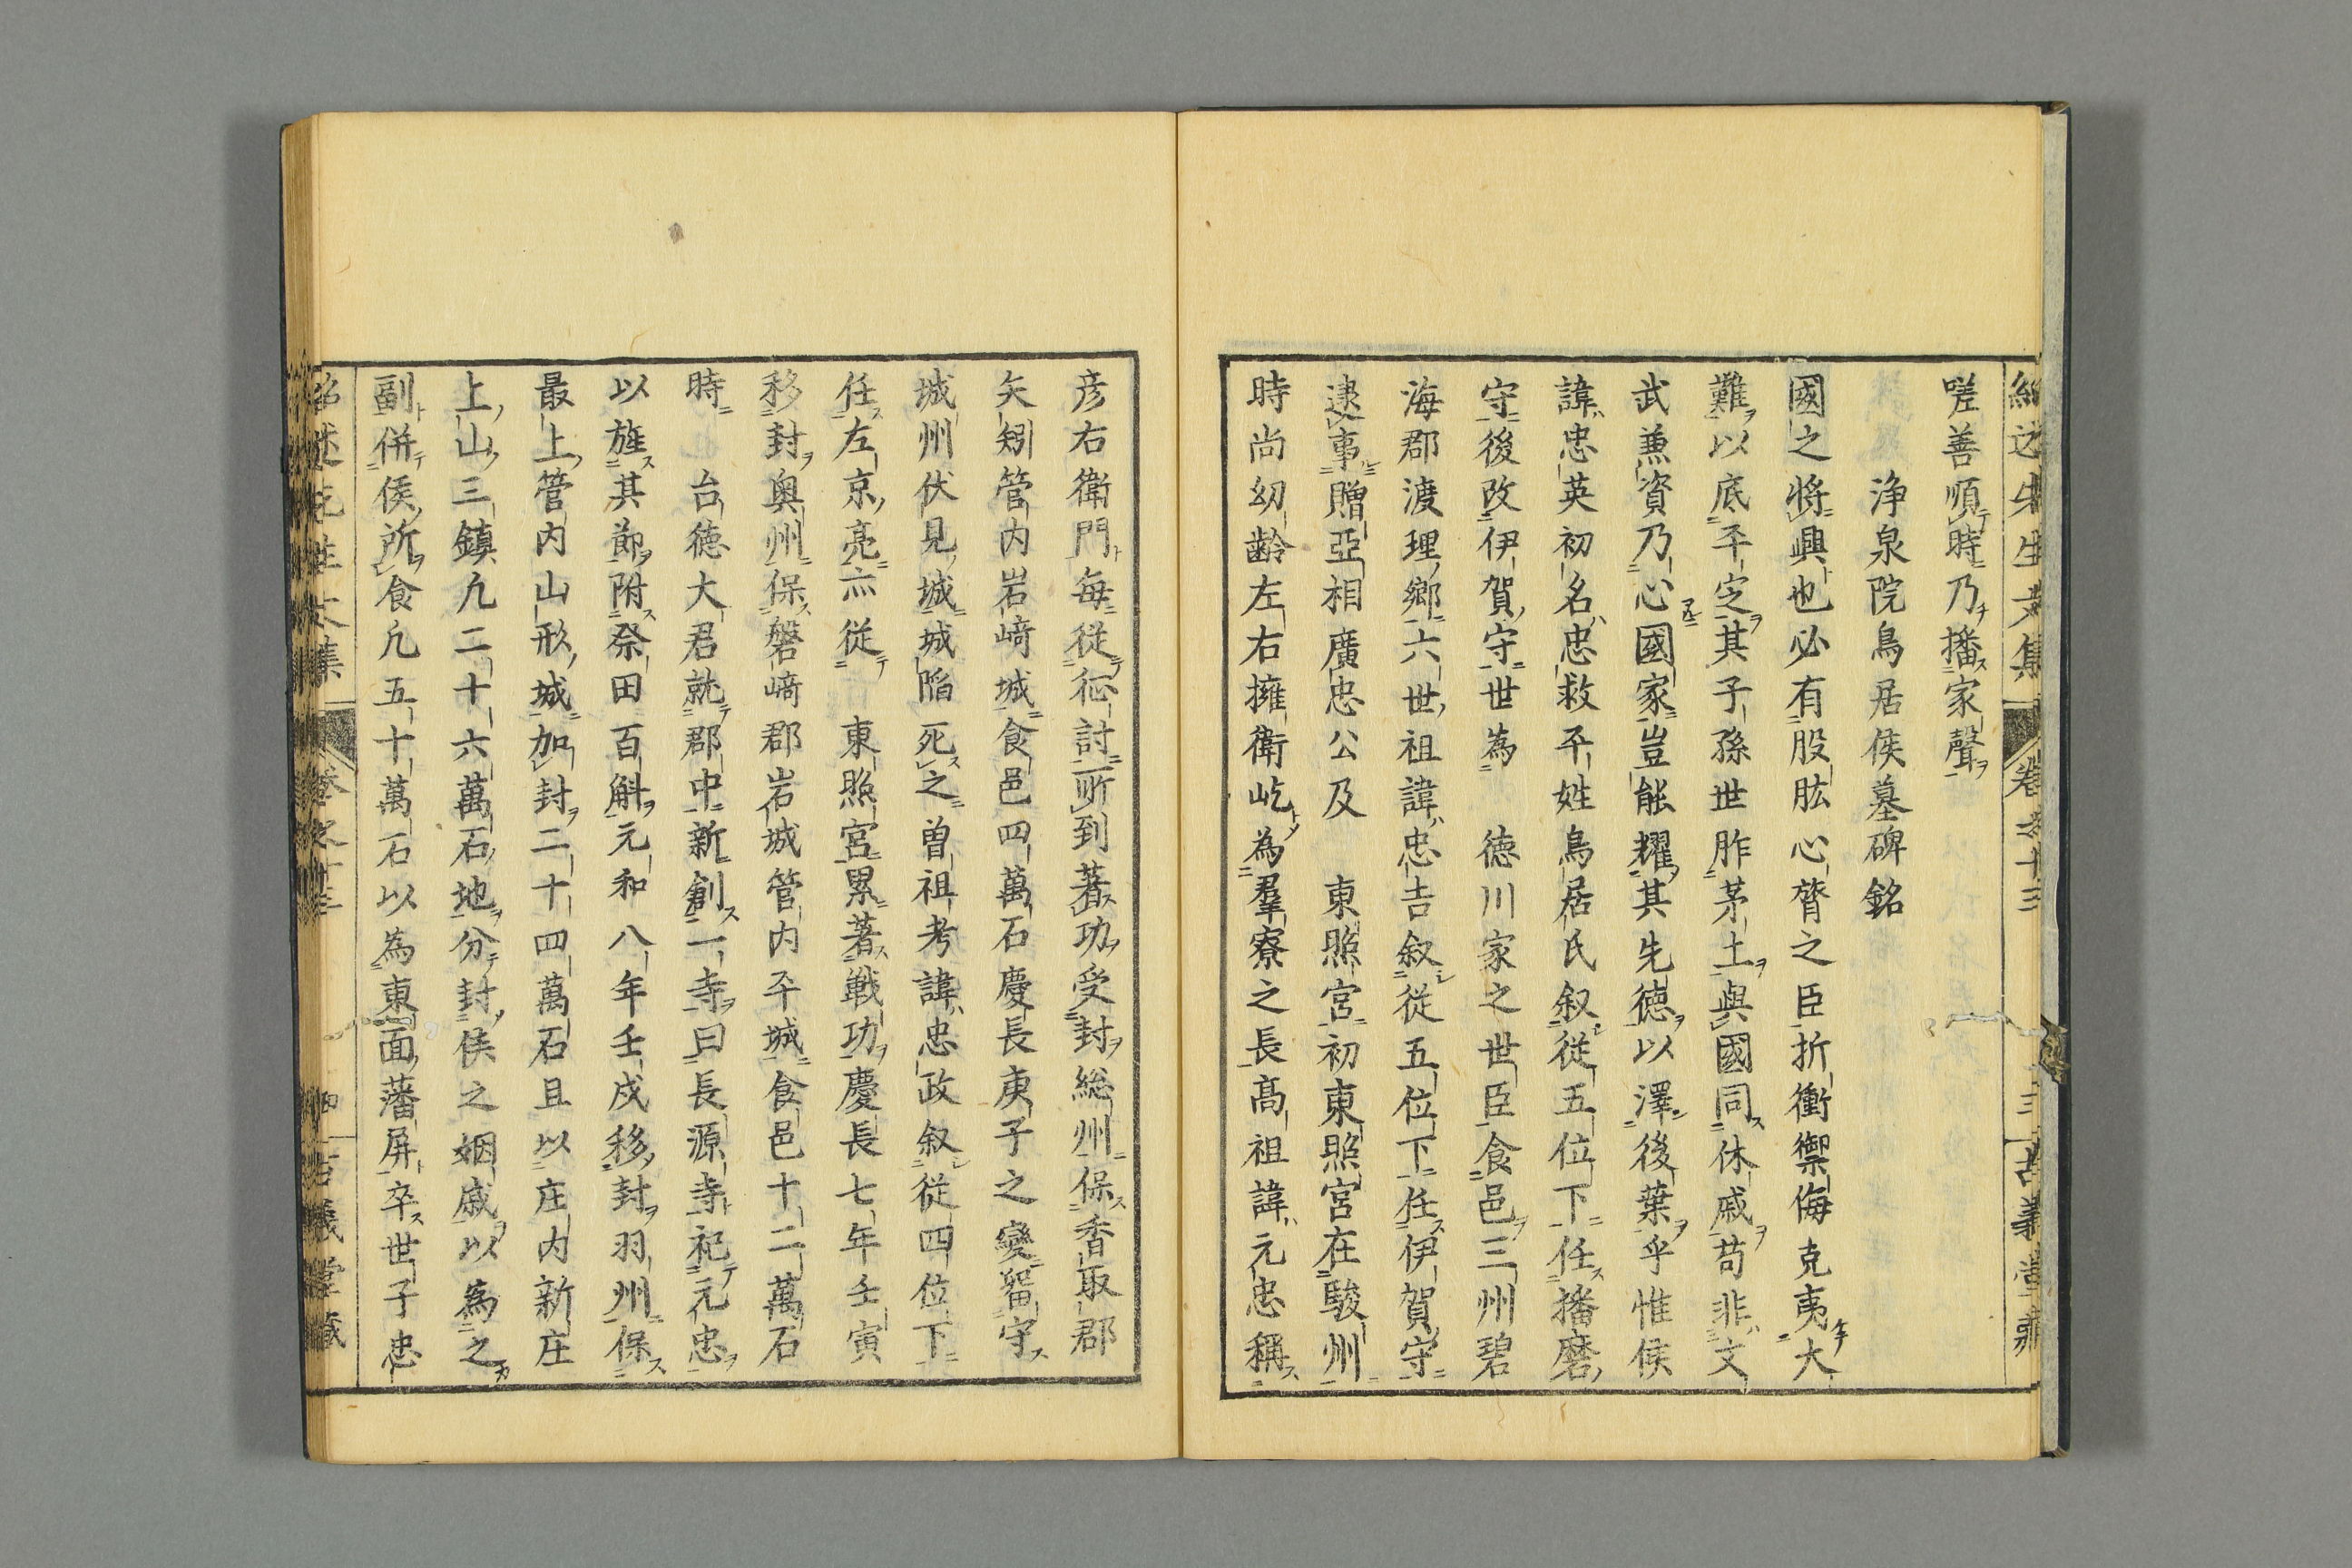 嗟善順時乃播家聲
浄泉院鳥居侯墓碑銘
國之將興也必有股肱心膂之臣折衝禦侮克夷大
難以底平定其子孫世胙茅土與國同休戚苟非文
武兼資乃心國家豈能耀其先徳以澤後葉乎惟侯
諱忠英初名忠救平姓鳥居氏叙從五位下任播磨
守後改伊賀守世為 徳川家之世臣食邑三州碧
海郡渡理郷六世祖諱忠吉叙從五位下任伊賀守
逮事贈亞相廣忠公及 東照宮初東照宮在駿州
時尚幼齢左右擁衛屹為羣寮之長高祖諱元忠稱
彦右衛門毎從征討所到著功受封総州保香取郡
矢矧管内岩﨑城食邑四萬石慶長庚子之變留守
城州伏見城城陥死之曽祖考諱忠政叙從四位下
任左京亮亦從 東照宮累著戦功慶長七年壬寅
移封奥州保磐﨑郡岩城管内平城食邑十二萬石
時 台徳大君就郡中新創一寺曰長源寺祀元忠
以旌其節附祭田百斛元和八年壬戌移封羽州保
最上管内山形城加封二十四萬石且以庄内新庄
上山三鎮九二十六萬石地分封侯之姻戚以為之
副併侯所食凡五十萬石以為東面藩屏卒世子忠